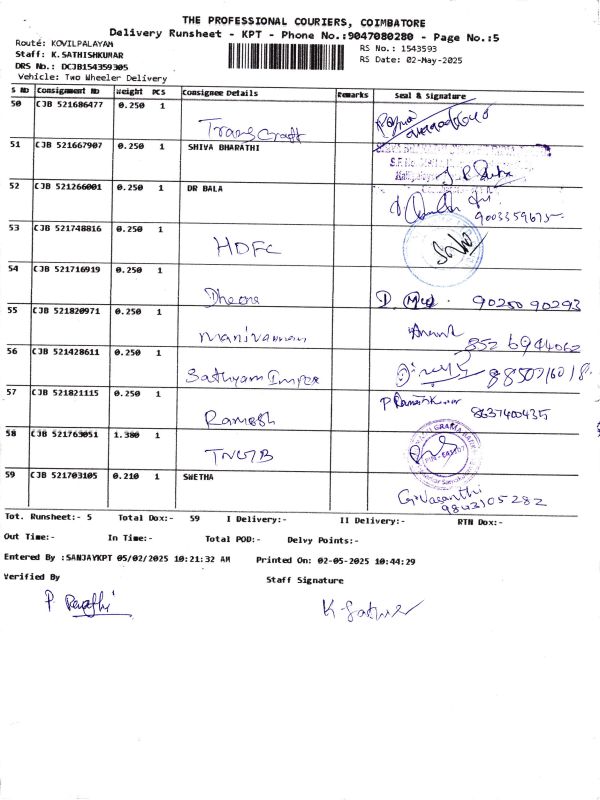 THE PROFESSIONAL COURIERS, COIMBATORE
Delivery Runsheet - KPT - Phone No.:9047080280 - Page No.:5
Route: KOVILPALAYAM
Staff: K.SATHISHKUMAR
DRS No.: DCJB154359305
Vehicle: Two Wheeler Delivery
RS No.: 1543593
RS Date: 02-May-2025
S No Consignment No Weight PCS Consignee Details Remarks Seal & Signature
50 CJB 521686477 0.250 1
51 CJB 521667907 0.250 1 SHIVA BHARATHI
52 CJB 521266001 0.250 1 DR BALA
9003359675
53 CJB 521748816 0.250 1 HDFC
54 CJB 521716919 0.250 1 90250 90293
55 CJB 521820971 0.250 1 Manivannan
56 CJB 521428611 0.250 1 Sathyam Impex
57 CJB 521821115 0.250 1 Ramesh 8637400435
58 CJB 521763051 1.380 1 TNGB
59 CJB 521703105 0.210 1 SWETHA G.Vasanthi
9843105282
Tot. Runsheet:- 5 Total Dox:- 59 I Delivery:- II Delivery:- RTN Dox:-
Out Time:- In Time:- Total POD:- Delvy Points:-
Entered By :SANJAYKPT 05/02/2025 10:21:32 AM Printed On: 02-05-2025 10:44:29
Verified By Staff Signature